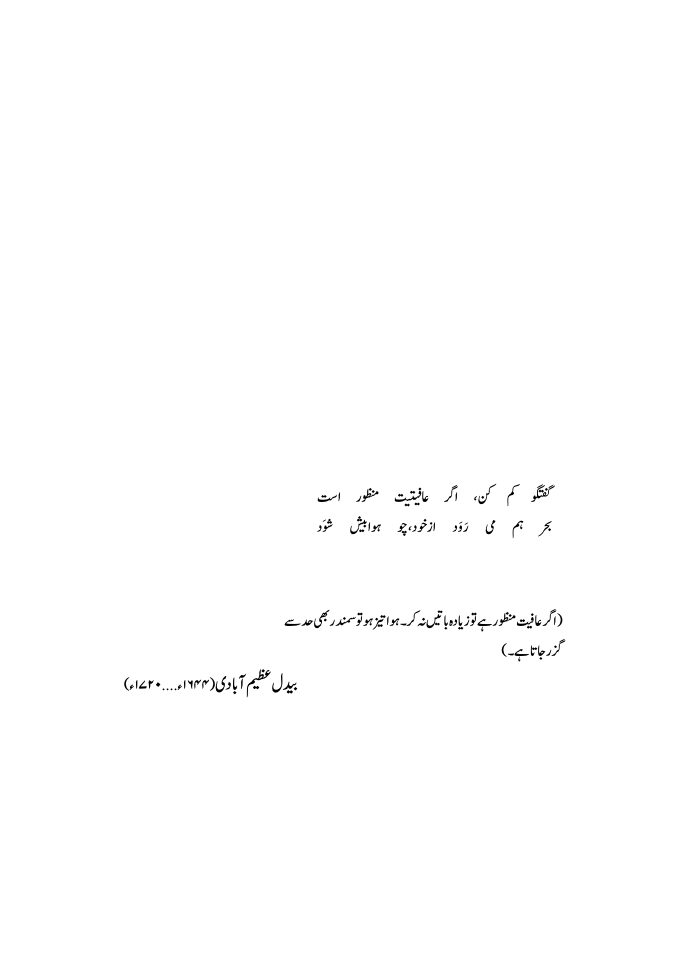 گفتگو کم کن، اگر عافیتیت منظور است
بحر ہم می رَوَد ازخود، چو ہوا بیش شوَد
(اگر عافیت منظور ہے تو زیادہ باتیں نہ کر۔ ہوا تیز ہو تو سمندر بھی حد سے
گزر جاتا ہے۔)
بیدل عظیم آبادی (۱۶۴۴ء....۱۷۲۰ء)